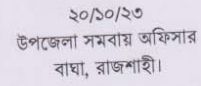 ২০/১০/২৩
উপজেলা সমবায় অফিসার
বাঘা, রাজশাহী।